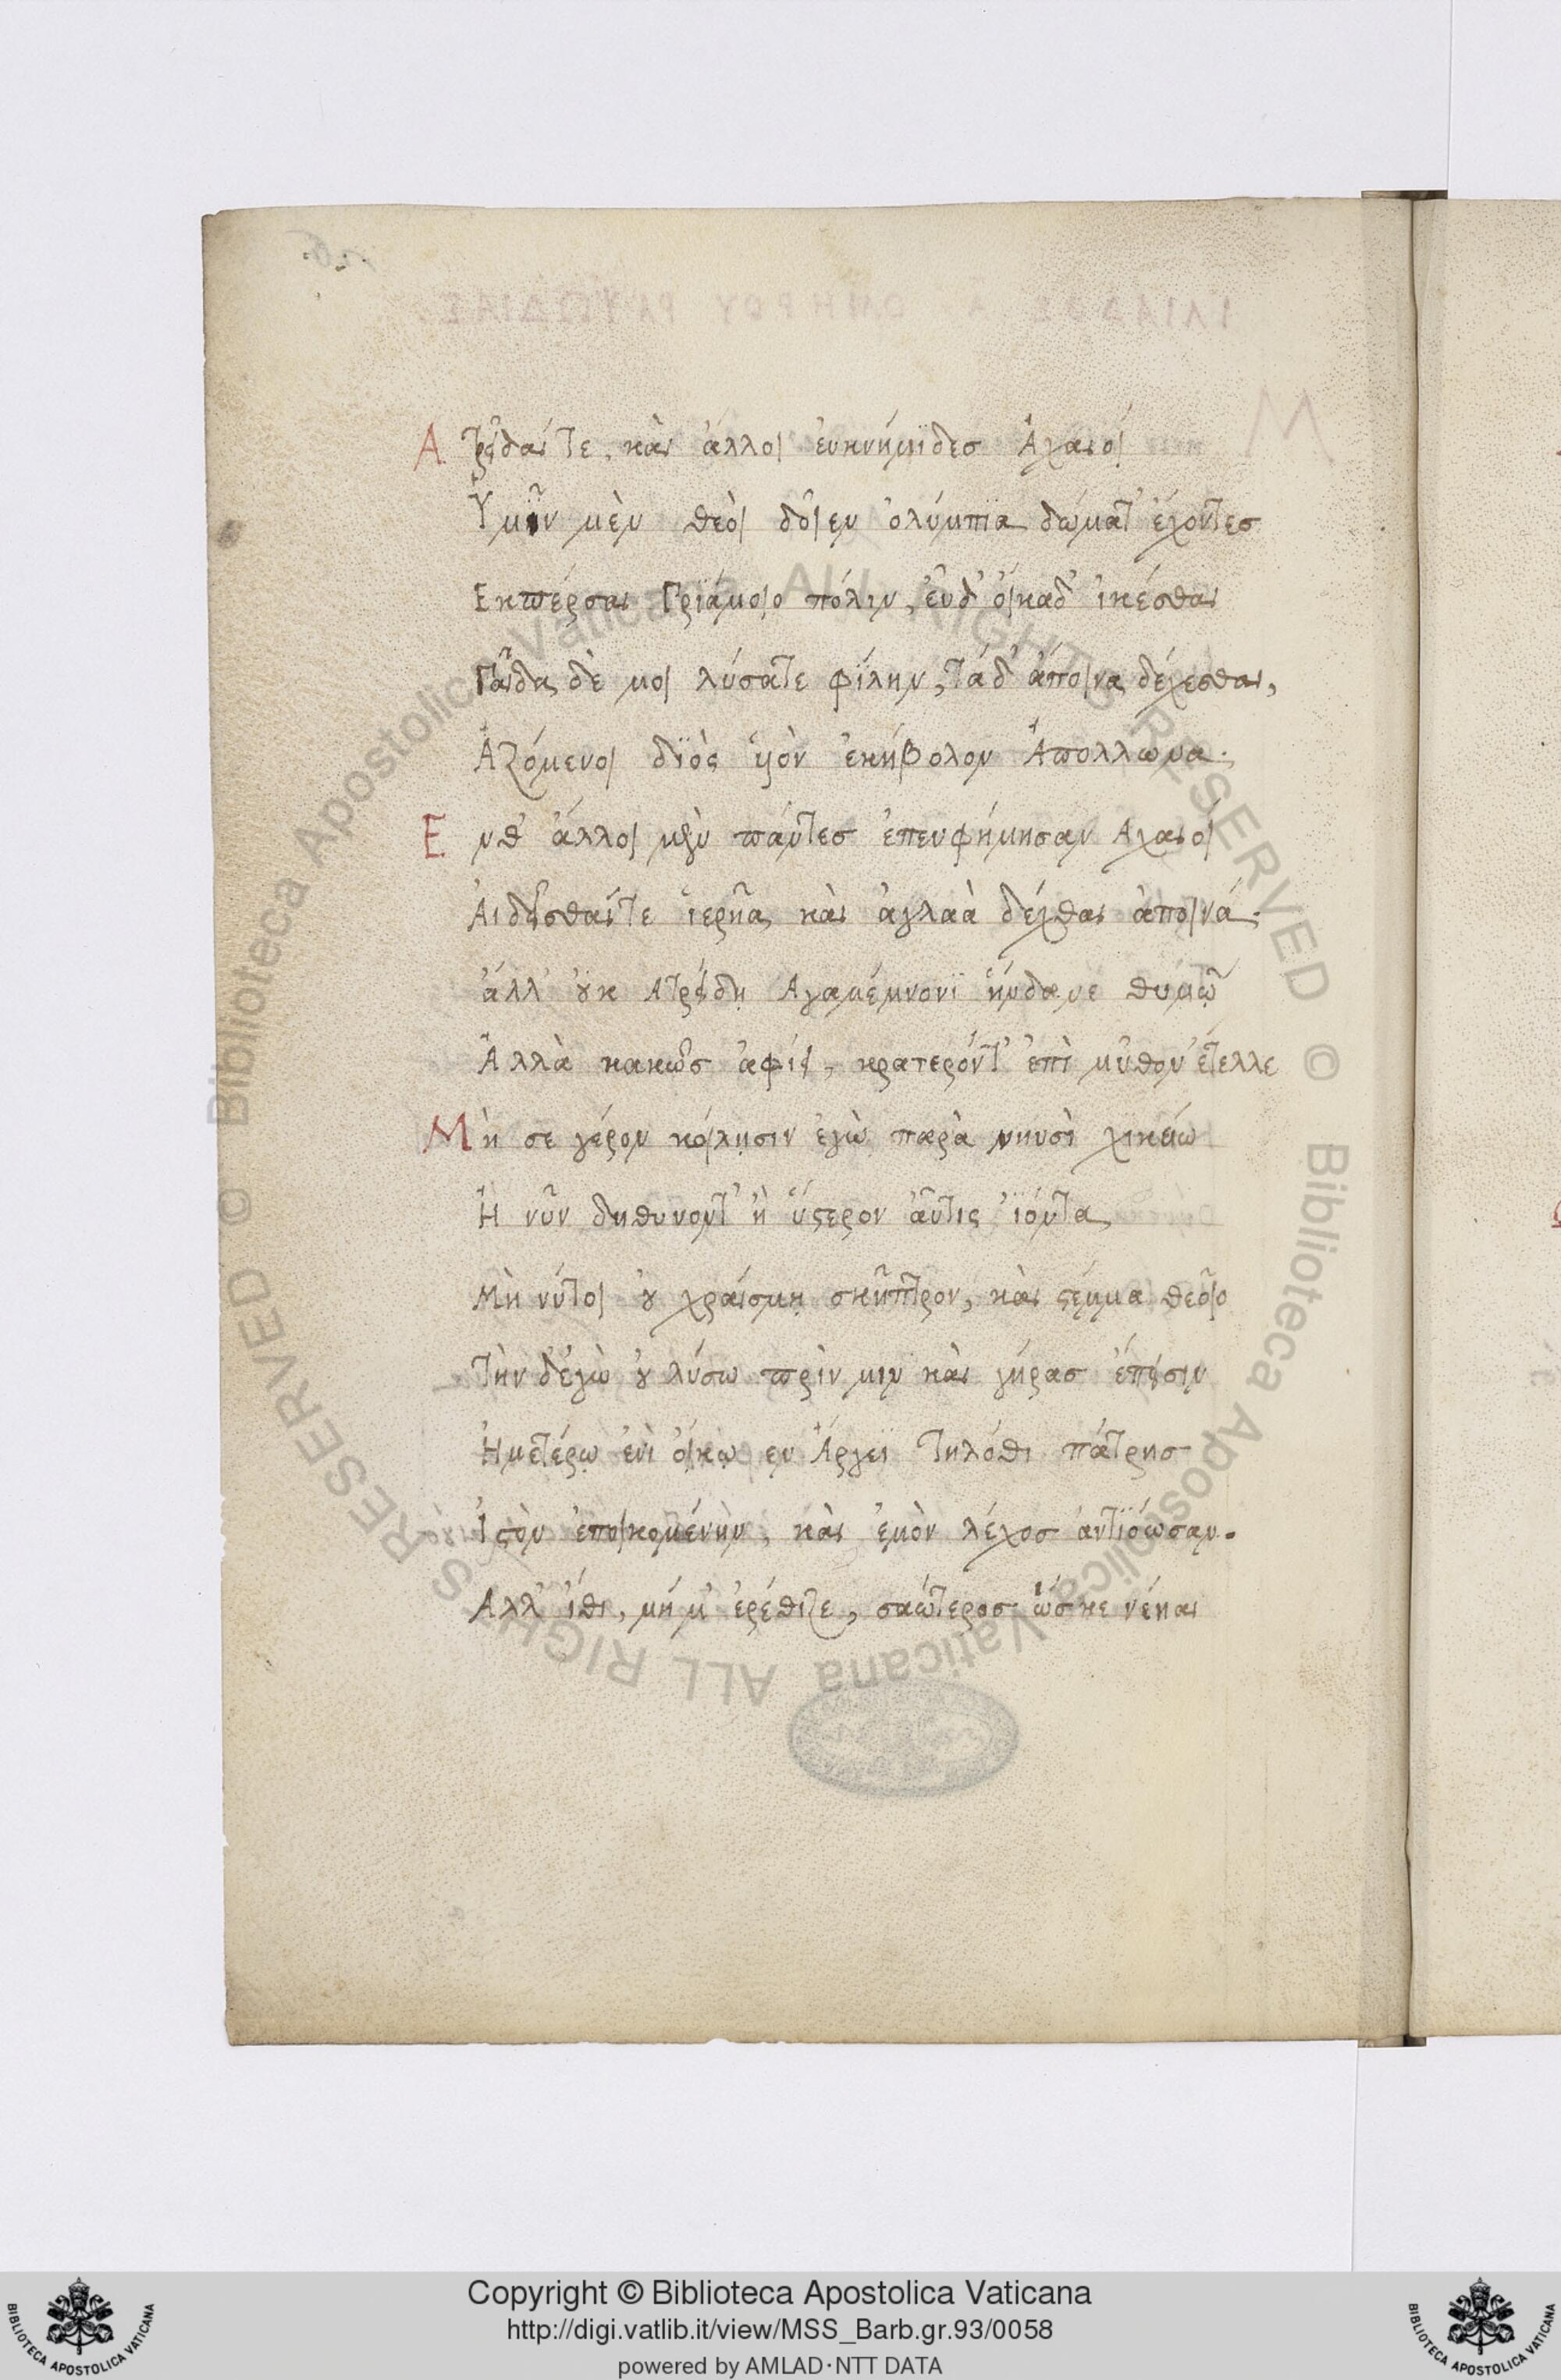 Ἀτρεῖδαίτε, καὶ ἄλλοι ἐυκνήμϊδεσ Ἀχαιοί
Ὑμῖν μὲν θεοὶ δοῖεν ὀλύμπϊα δώματ' ἔχοντεσ
Εκπέρσαι Πρϊάμοιο πόλιν, ἐῦδ' οἴκαδ' ἰκέσθαι
Παῖδα δὲ μοι λύσατε φίλην, τάδ' ἄποινα δέχεσθαι,
Ἁζόμενοι δϊὸς ὑιὸν ἑκήβολον Ἀπολλωνα.
Ενθ' ἄλλοι μὲν πάντεσ ἐπευφήμησαν Αχαιοί
Ἀιδεῖσθαίτε ἱερῆα καὶ ἀγλαὰ δέχθαι ἀποινά.
ἀλλ' οὐκ Ατρείδῃ Αγαμέμνονϊ ἥνδανε θυμῷ
Ἀλλὰ κακῶσ ἀφίει, κρατερόντ' ἐπὶ μῦθον ἔτελλε
Μή σε γέρον κοίλῃσιν ἐγὼ παρὰ νηυσὶ χικείω
Ἠ νῦν δηθυνοντ' ἢ ὕστερον ἀῦτις ἰϊόντα
Μὴ νύτοι οὐ χραίσμῃ σκῆπτρον, καὶ στέμμα θεοῖο
Τὴν δ'ἐγὼ οὐ λύσω πρὶν μιν καὶ γήρασ ἔπεισιν
Ἡμετέρῳ ἐνὶ οἴκῳ εν Ἄργεϊ Τηλόθι πάτρησ
Ἱστὸν ἐποικομένὴν, καὶ ἐμὸν λέχοσ ἀντϊόωσαν.
Αλλ' ἴθι, μή μ' ἐρέθιζε, σαώτεροσ ὥσκε νέηαι
Copyright © Biblioteca Apostolica Vaticana
http://digi.vatlib.it/view/MSS_Barb.gr.93/0058
powered by AMLAD·NTT DATA